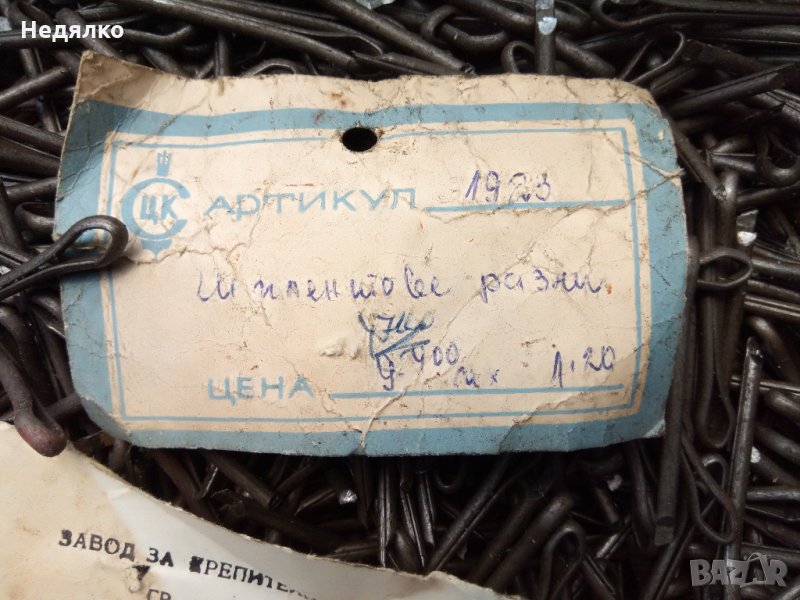 Недялко
ЦК АРТИКУЛ 1923
Шплентове разни
400
ЦЕНА 1.20
ЗАВОД ЗА КРЕПИТЕЛ
ГР
BAZAR